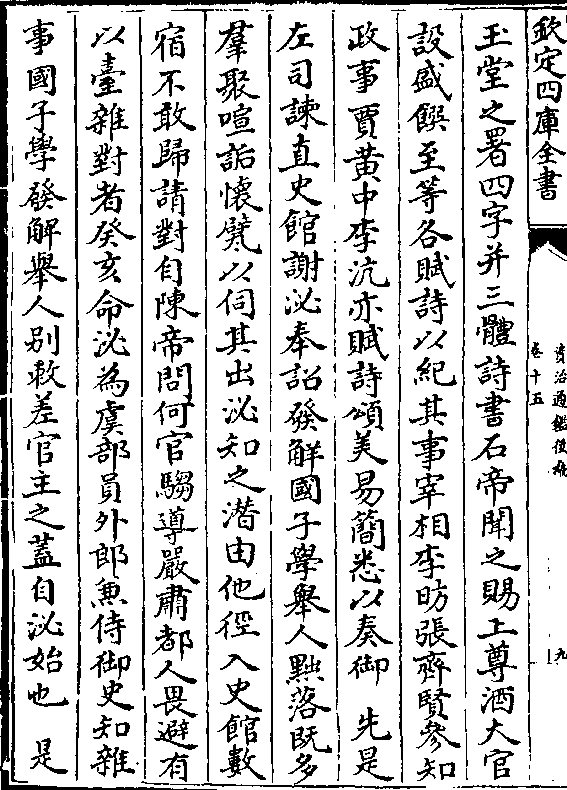 欽定四庫全書
資治通鑑後編
卷十五
九
玉堂之署四字并三體詩書石帝聞之賜上尊酒大官
設盛饌至等各賦詩以紀其事宰相李昉張齊賢參知
政事賈黃中李沆亦賦詩頌美易簡悉以奏御 先是
左司諫直史館謝泌奉詔發解國子學舉人黜落既多
羣聚喧詬懷甓以伺其出泌知之潛由他徑入史館數
宿不敢歸請對自陳帝問何官騶導嚴肅都人畏避有
以臺雜對者癸亥命泌為虞部員外郎兼侍御史知雜
事國子學發解舉人別敕差官主之蓋自泌始也 是